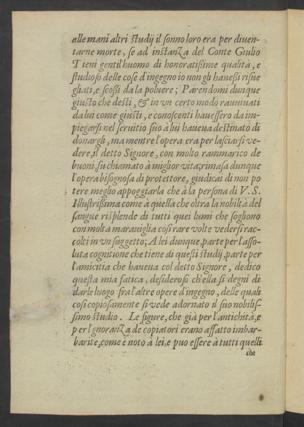 alle mani altri studij il sonno loro era per diuen-
tarne morte, se ad instanza del Conte Giulio
Tieni gentil'huomo di honoratissime qualità, e
studioso delle cose d'ingegno io non gli hauessi risue
gliati, e scossi da la poluere; Parendomi dunque
giusto che desti, & in vn certo modo rauuiuati
da lui come giusti, e conoscenti hauessero da im-
piegarsi nel seruitio suo à lui haueua destinato di
donargli, ma mentre l'opera era per lasciarsi ve-
dere, il detto Signore, con molto rammarico de
buoni, fu chiamato à miglior vita; rimasa dunque
l'opera bisognosa di protettore, giudicai di non po
tere meglio appoggiarla che à la persona di V. S.
Illustrissima come à quella che oltra la nobiltà del
sangue risplende di tutti quei lumi che sogliono
con molta marauiglia così rare volte vedersi rac-
colti in vn suggetto; A lei dunque, parte per l'asso-
luta cognitione che tiene di questi studij, parte per
l'amicitia che haueua col detto Signore, dedico
questa mia fatica, desideroso ch'ella si degni di
darle luogo fra l'altre opere d'ingegno, delle quali
così copiosamente si vede adornato il suo nobilis-
simo studio. Le figure, che già per l'antichità, e
per l'gnoranza de copiatori erano affatto imbar-
barite, come è noto à lei, e può essere à tutti quelli
che